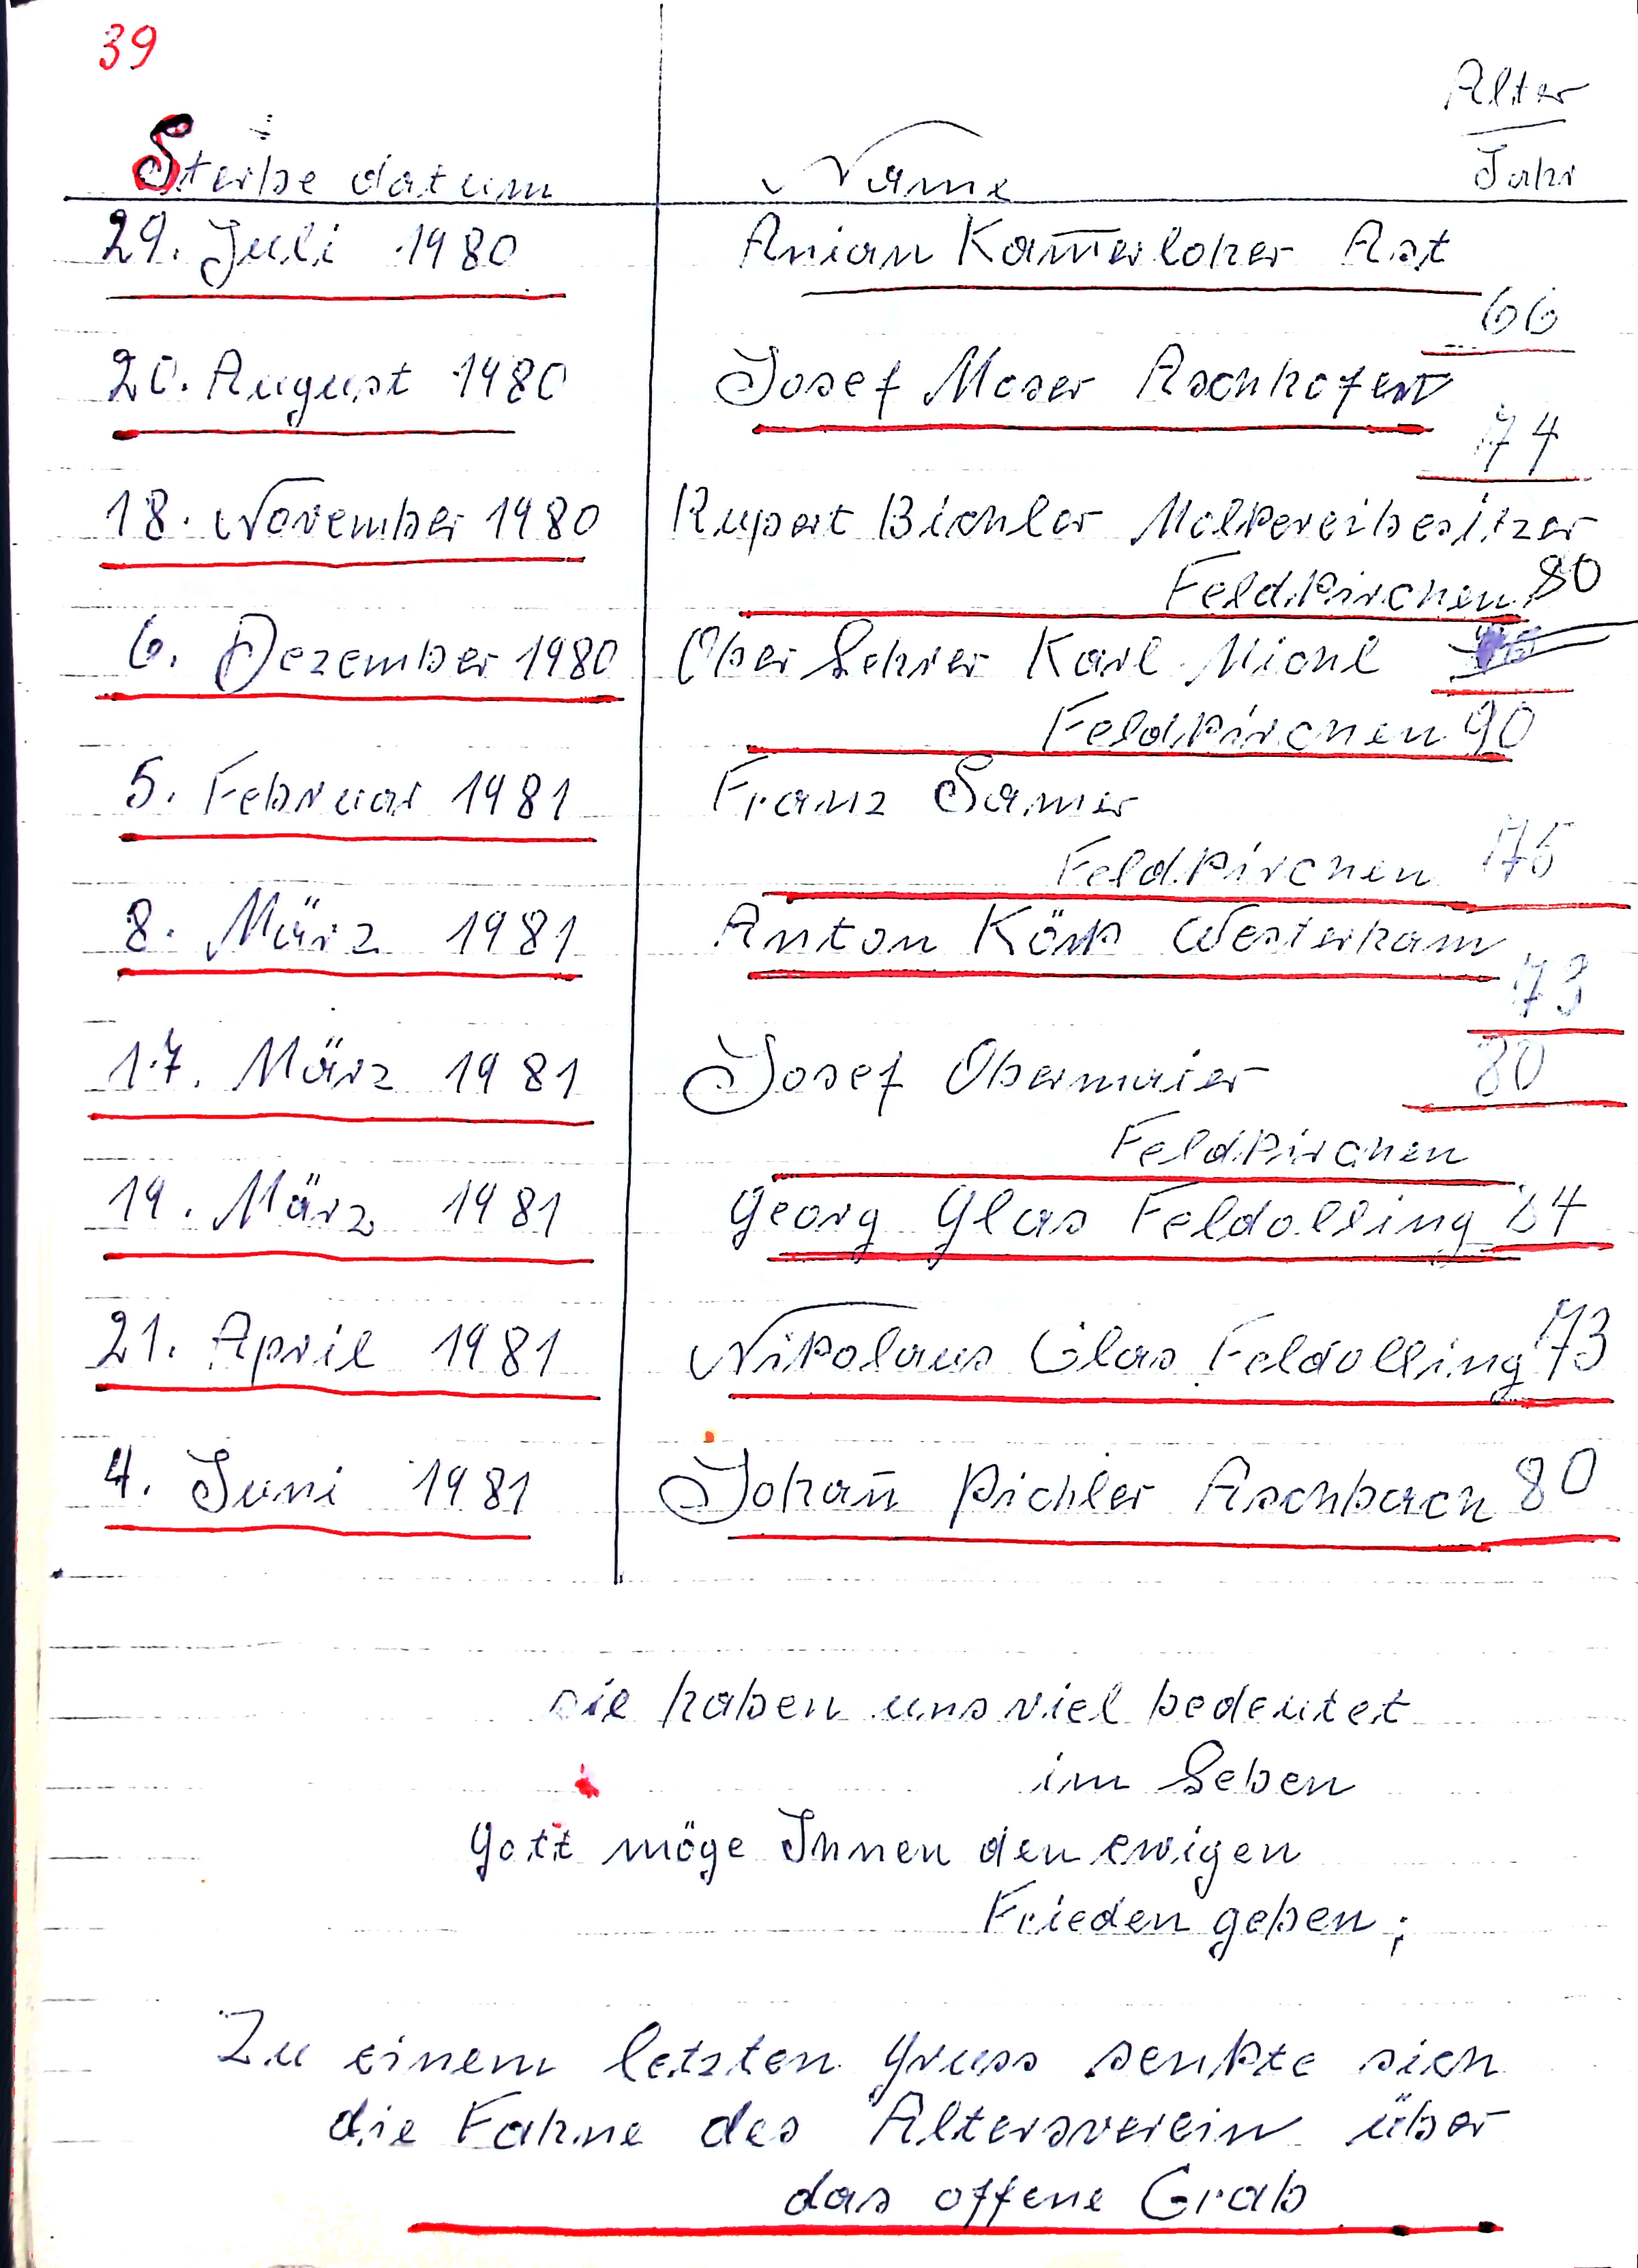 39
Alter
Sterbe datum Name Jahr
29. Juli 1980 Anian Kam̅erloher Ast
66
20. August 1980 Josef Moser Aschhofen
74
18. November 1980 Rupert Bichler Molkereibesitzer
Feldkirchen 80
6. Dezember 1980 Ober Lehrer Karl Michl
Feldkirchen 90
5. Februar 1981 Franz Samer
Feldkirchen 75
8. März 1981 Anton Körb Westerham
73
17. März 1981 Josef Obermaier 80
Feldkirchen
19. März 1981 Georg Glas Feldolling 84
21. April 1981 Nikolaus Glas Feldolling 73
4. Juni 1981 Johan̅ Pichler Aschbach 80
sie haben uns viel bedeutet
im Leben
Gott möge Ihnen den ewigen
Frieden geben;
Zu einem letzten Gruss senkte sich
die Fahne des Altersverein über
das offene Grab